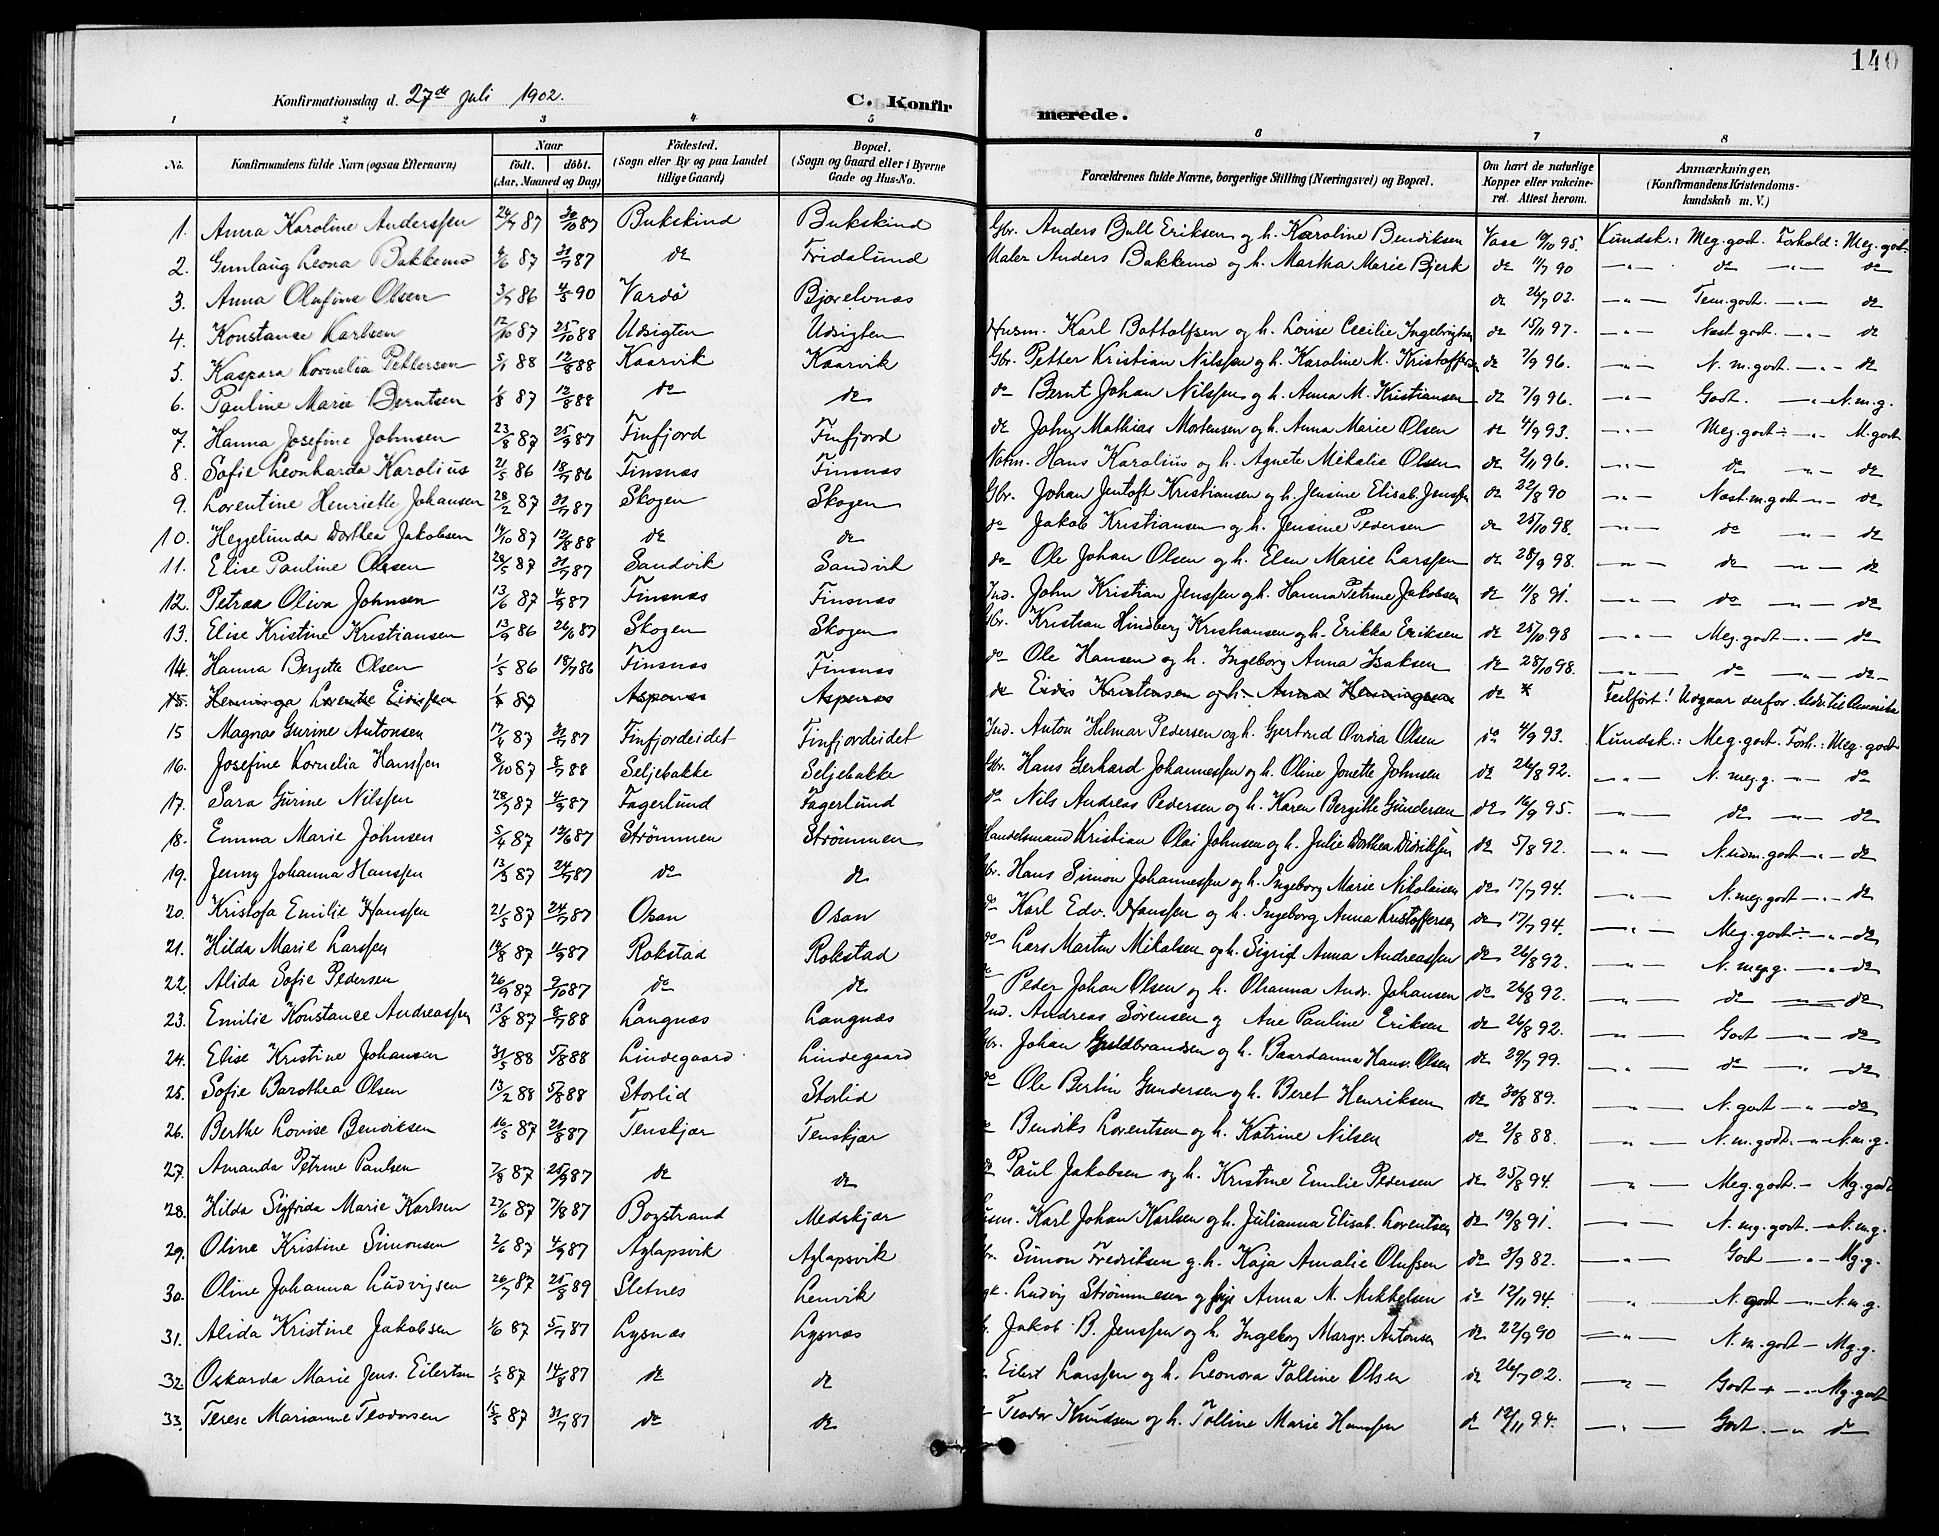 140
Konfirmationsdag d. 27de Juli 1902. C. Konfir merede.
1 2 3 4 5 6 7 8
No. Konfirmandens fulde Navn (ogsaa Efternavn) Naar födt. döbt. (Aar, Maaned og Dag) Födested. (Sogn eller By og paa Landet tillige Gaard) Bopæl. (Sogn og Gaard eller i Byerne Gade og Hus-No. Forældrenes fulde Navne, borgerlige Stilling (Næringsvei) og Bopæl. Om havt de naturlige Kopper eller vakcineret. Attest herom. Anmærkninger. (Konfirmandens Kristendomskundskab m. V.)
1. Anna Karoline Anderssen 24/7 87 30/10 87 Bukskind Bukskind Gbr. Anders Bull Eriksen og h. Karoline Bendiksen Vacc 10/10 95. Kundsk.: Meg. godt. Forhold: Meg. godt
2. Gunlaug Leona Bakkemo 6/6 87 31/7 87 do Fridalund Maler Anders Bakkemo og h. Martha Marie Bjerk do 11/7 90 —"— do —"— do
3. Anna Olufine Olsen 3/7 86 4/5 90 Vardö Bjorelvnæs do 26/7 02. —"— Tem. godt. —"— do
4. Konstance Karlsen 12/10 87 25/10 88 Udsigten Udsigten Husm. Karl Bottolfsen og h. Lovise Cecilie Ingebrigtsen do 15/11 97. —"— Næst godt. —"— do
5. Kaspara Kornelia Pettersen 5/1 88 12/8 88 Kaarvik Kaarvik Gbr. Petter Kristian Nilssen og h. Karoline M. Kristoffersen do 7/9 96. —"— N. m. godt. —"— do
6. Pauline Marie Berntsen 1/8 87 12/8 88 do do do Bernt Johan Nilssen og h. Anna M. Kristiansen do 7/9 96. —"— Godt. —"— N. m. g.
7. Hanna Josefine Johnsen 23/8 87 25/9 87 Finfjord Finfjord do John Mathias Mortensen og h. Anna Marie Olsen do 4/9 93. —"— Meg. godt ÷ —"— M. godt
8. Sofie Leonharda Karolius 21/5 86 18/7 86 Finsnæs Finsnæs Hans Karolius og h. Agnete Mikalie Olsen do 2/11 96. —"— do —"— do
9. Lorentine Henriette Johansen 28/2 87 31/7 87 Skogen Skogen Gbr. Johan Jentoft Kristiansen og h. Jensine Elisab. Jenssen do 22/8 90 —"— Næst. m. godt —"— do
10. Heggelunda Dorthea Jakobsen 14/10 87 12/8 88 do do do Jakob Kristiansen og h. Jensine Pedersen do 25/10 98. —"— do —"— do
11. Elise Pauline Olsen 24/5 87 31/7 87 Sandvik Sandvik do Ole Johan Olsen og h. Elen Marie Larssen do 28/9 98. —"— do —"— do
12. Petraa Oliva Johnsen 13/6 87 4/9 87 Finsnæs Finsnæs Ind. John Kristian Jenssen og h. Hanna Petrine Jakobsen do 4/8 91. —"— do —"— do
13. Elise Kristine Kristiansen 13/9 86 26/6 87 Skogen Skogen Gbr. Kristian Hindberg Kristiansen og h. Erikka Eriksen do 25/10 98 —"— Meg. godt —"— do
14. Hanna Bergitte Olsen 1/5 86 18/7 86 Finsnæs Finsnæs do Ole Hansen og h. Ingeborg Anna Isaksen do 28/10 98. —"— do —"— do
15. Henninga Lorentse Eidissen 87 Aspenæs Aspenæs do Eidis Kristensen og h. Anna Henningsen do * Feilfört! Udgaar derfor.
15 Magna Gurine Antonsen 17/4 87 31/7 87 Finfjordeidet Finfjordeidet Ind. Anton Hilmar Pedersen og h. Gjertrud Ovidia Olsen do 4/9 93. Kundsk.: Meg. godt. Forh.: Meg. godt
16. Josefine Kornelia Hanssen 8/10 87 8/7 88 Seljebakke Seljebakke Gbr. Hans Gerhard Johannessen og h. Oline Jonette Johnsen do 26/8 92. —"— N. meg. g. —"— do
17. Sara Gurine Nilssen 28/7 87 4/9 87 Fagerlund Fagerlund do Nils Andreas Pedersen og h. Karen Bergitte Gundersen do 16/9 95. —"— do —"— do
18. Emma Marie Johnsen 5/4 87 12/6 87 Strømmen Strømmen Handelsmand Kristian Olai Johnsen og h. Julie Dorthea Didriksen do 5/8 92. —"— N. udm. godt —"— do
19. Jenny Johanna Hanssen 13/3 87 24/7 87 do do Gbr. Hans Simon Johannessen og h. Ingeborg Marie Nikolaisen do 17/7 94. —"— N. meg. godt —"— do
20. Kristofa Emilie Hanssen 21/5 87 24/7 87 Osan Osan do Karl Edv. Hanssen og h. Ingeborg Anna Kristoffersen do 17/7 94. —"— Meg. godt ÷ —"— do
21. Hilda Marie Larssen 14/8 87 4/9 87 Rokstad Rokstad do Lars Martin Mikalsen og h. Sigrid Anna Andreassen do 26/8 92. —"— N. meg. g. —"— do
22. Alida Sofie Pedersen 26/9 87 9/10 87 do do do Peder Johan Olsen og h. Ohanna Andr. Johansen do 26/8 92. —"— do —"— do
23. Emilie Konstance Andreassen 13/8 87 8/7 88 Langnæs Langnæs Ind. Andreas Sørensen og Ane Pauline Eriksen do 26/8 92. —"— Godt —"— do
24. Elise Kristine Johansen 31/5 88 5/8 88 Lindegaard Lindegaard Gbr. Johan Guldbrandsen og h. Baardanna Hans. Olsen do 29/7 99. —"— do —"— do
25. Sofie Barothea Olsen 13/2 88 5/8 88 Storlid Storlid do Ole Bertin Gundersen og h. Beret Henriksen do 30/8 89. —"— N. godt —"— do
26. Berthe Lovise Bendiksen 16/5 87 21/8 87 Tenskjær Tenskjær do Bendiks Lorentsen og h. Katrine Nilsen do 2/8 88. —"— N. m. godt. —"— N. m. g.
27. Amanda Petrine Paulsen 7/8 87 25/9 87 do do do Paul Jakobsen og h. Kristine Emilie Pedersen do 25/8 94. —"— Meg. godt. — Mg. godt
28. Hilda Sigfrida Marie Karlsen 27/6 87 7/8 87 Bogstrand Medskjær Husm. Karl Johan Karlsen og h. Julianna Elisab. Lorentsen do 19/8 91. —"— N. mg. godt. —"— N. m. g.
29. Oline Kristine Simonsen 2/6 87 4/9 87 Aglapsvik Aglapsvik Gbr. Simon Fredriksen og h. Kaja Amalie Olufsen do 3/9 82. —"— Godt —"— Mg. g.
30. Oline Johanna Ludvigsen 26/7 87 25/8 89 Sletnes Lenvik Ludvig Strømmesen og Anna M. Mikkelsen do 12/11 94. —"— N. godt —"— N. m. g.
31. Alida Kristine Jakobsen 1/6 87 5/7 87 Lysnæs Lysnæs Jakob B. Jenssen og h. Ingeborg Margr. Antonsen do 22/9 90 —"— N. m. godt — Mg. g.
32. Oskarda Marie Jens. Eilertsen 1/5 87 14/8 87 do do Eilert Larssen og h. Leonora Talline Olsen do 26/7 02. —"— Godt + —"— Mg. godt
33. Terese Marianne Teodorsen 15/5 87 31/7 87 do do Teodor Knudsen og h. Tolline Marie Hanssen do 12/11 94. —"— Godt. —"— do